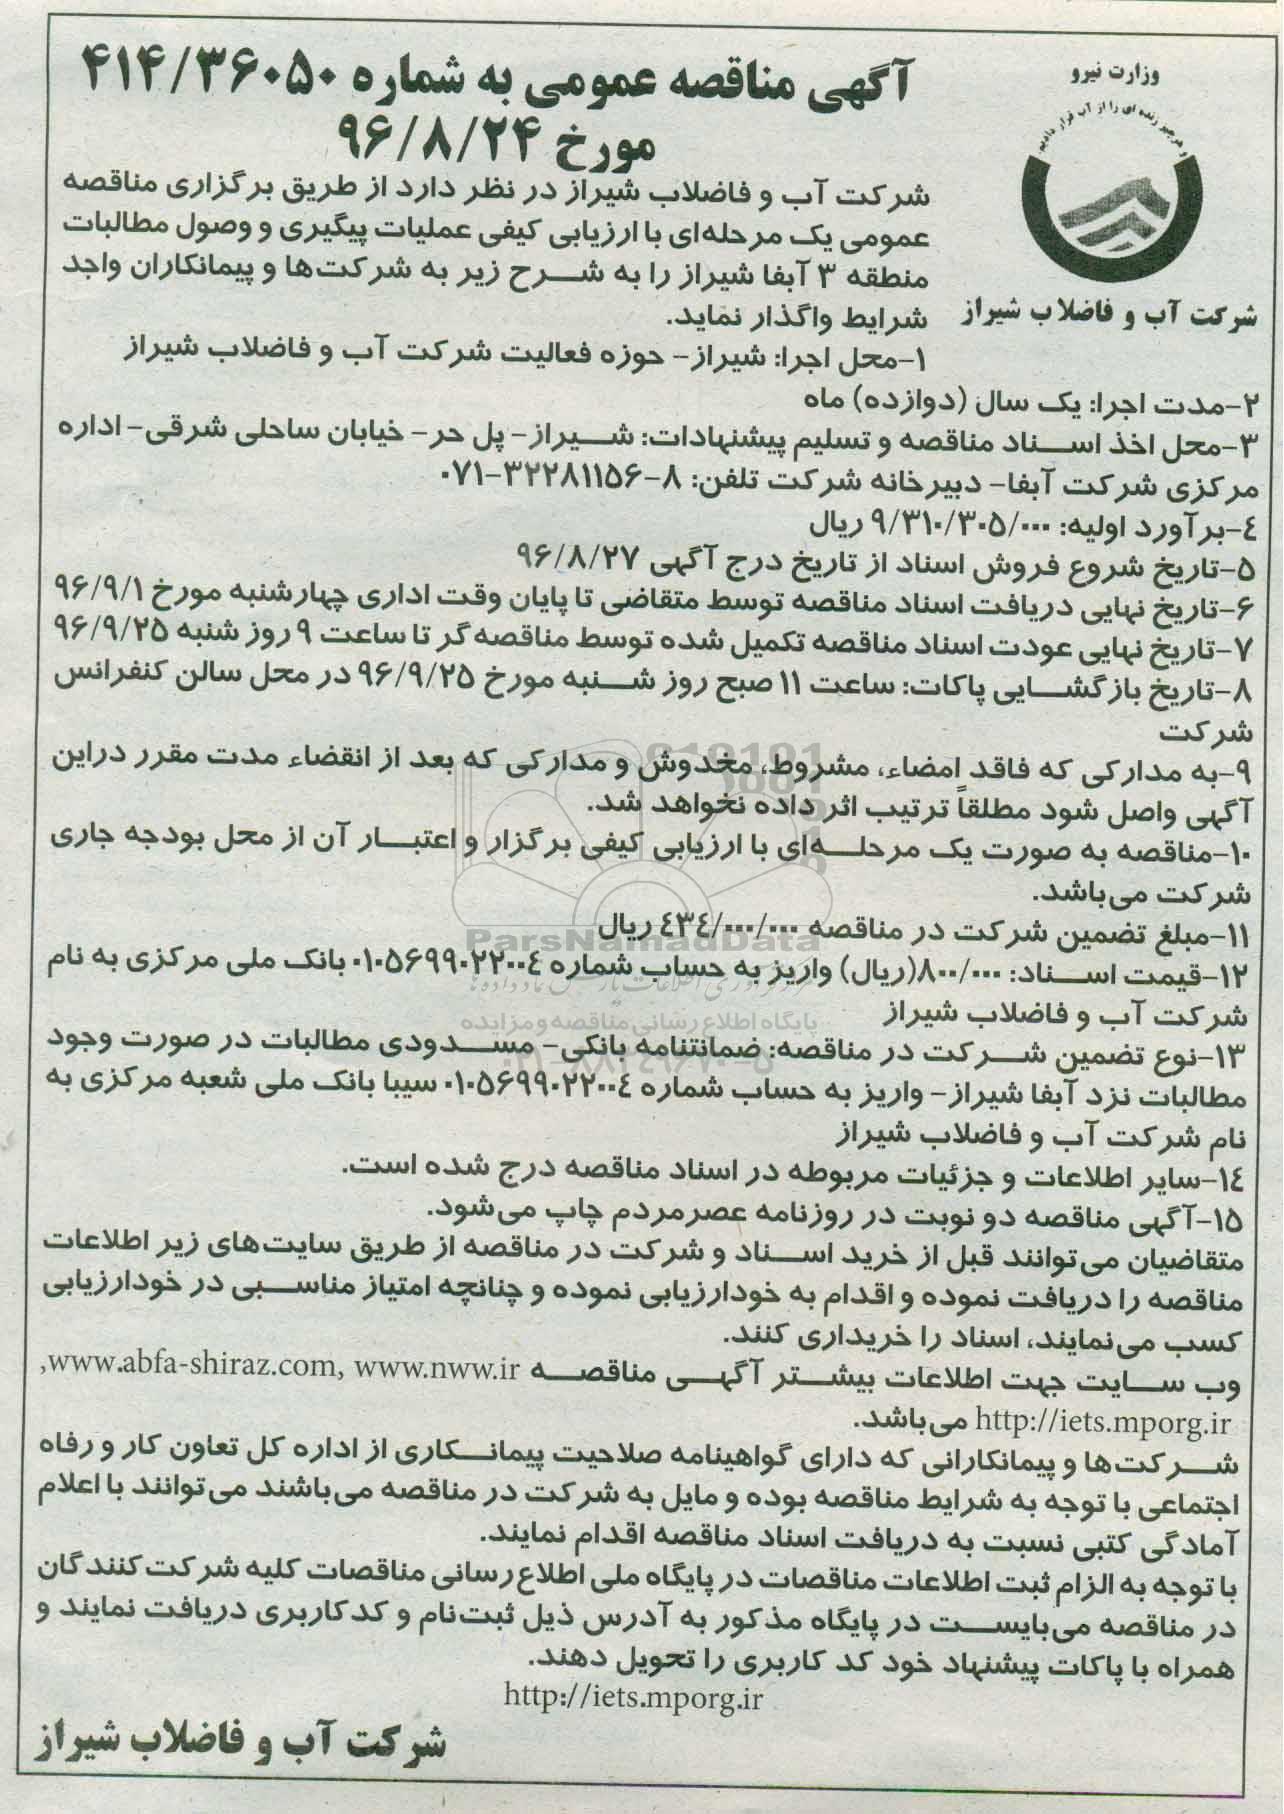 وزارت نیرو
و هر چیز زنده ای را از آب قرار دادیم
شرکت آب و فاضلاب شیراز
آگهی مناقصه عمومی به شماره ۴۱۴/۳۶۰۵۰
مورخ ۹۶/۸/۲۴
شرکت آب و فاضلاب شیراز در نظر دارد از طریق برگزاری مناقصه
عمومی یک مرحله‌ای با ارزیابی کیفی عملیات پیگیری و وصول مطالبات
منطقه ۳ آبفا شیراز را به شرح زیر به شرکت‌ها و پیمانکاران واجد
شرایط واگذار نماید.
۱-محل اجرا: شیراز- حوزه فعالیت شرکت آب و فاضلاب شیراز
۲-مدت اجرا: یک سال (دوازده) ماه
۳-محل اخذ اسناد مناقصه و تسلیم پیشنهادات: شیراز- پل حر- خیابان ساحلی شرقی- اداره
مرکزی شرکت آبفا- دبیرخانه شرکت تلفن: ۸-۳۲۲۸۱۱۵۶-۰۷۱
۴-برآورد اولیه: ۹/۳۱۰/۳۰۵/۰۰۰ ریال
۵-تاریخ شروع فروش اسناد از تاریخ درج آگهی ۹۶/۸/۲۷
۶-تاریخ نهایی دریافت اسناد مناقصه توسط متقاضی تا پایان وقت اداری چهارشنبه مورخ ۹۶/۹/۱
۷-تاریخ نهایی عودت اسناد مناقصه تکمیل شده توسط مناقصه گر تا ساعت ۹ روز شنبه ۹۶/۹/۲۵
۸-تاریخ بازگشایی پاکات: ساعت ۱۱ صبح روز شنبه مورخ ۹۶/۹/۲۵ در محل سالن کنفرانس
شرکت
۹-به مدارکی که فاقد امضاء، مشروط، مخدوش و مدارکی که بعد از انقضاء مدت مقرر دراین
آگهی واصل شود مطلقاً ترتیب اثر داده نخواهد شد.
۱۰-مناقصه به صورت یک مرحله‌ای با ارزیابی کیفی برگزار و اعتبار آن از محل بودجه جاری
شرکت می‌باشد.
۱۱-مبلغ تضمین شرکت در مناقصه ۴۳۴/۰۰۰/۰۰۰ ریال
۱۲-قیمت اسناد: ۸۰۰/۰۰۰(ریال) واریز به حساب شماره ۰۱۰۵۶۹۹۰۲۲۰۰۴ بانک ملی مرکزی به نام
شرکت آب و فاضلاب شیراز
۱۳-نوع تضمین شرکت در مناقصه: ضمانتنامه بانکی- مسدودی مطالبات در صورت وجود
مطالبات نزد آبفا شیراز- واریز به حساب شماره ۰۱۰۵۶۹۹۰۲۲۰۰۴ سیبا بانک ملی شعبه مرکزی به
نام شرکت آب و فاضلاب شیراز
۱۴-سایر اطلاعات و جزئیات مربوطه در اسناد مناقصه درج شده است.
۱۵-آگهی مناقصه دو نوبت در روزنامه عصرمردم چاپ می‌شود.
متقاضیان می‌توانند قبل از خرید اسناد و شرکت در مناقصه از طریق سایت‌های زیر اطلاعات
مناقصه را دریافت نموده و اقدام به خودارزیابی نموده و چنانچه امتیاز مناسبی در خودارزیابی
کسب می‌نمایند، اسناد را خریداری کنند.
وب سایت جهت اطلاعات بیشتر آگهی مناقصه www.abfa-shiraz.com, www.nww.ir,
http://iets.mporg.ir می‌باشد.
شرکت‌ها و پیمانکارانی که دارای گواهینامه صلاحیت پیمانکاری از اداره کل تعاون کار و رفاه
اجتماعی با توجه به شرایط مناقصه بوده و مایل به شرکت در مناقصه می‌باشند می‌توانند با اعلام
آمادگی کتبی نسبت به دریافت اسناد مناقصه اقدام نمایند.
با توجه به الزام ثبت اطلاعات مناقصات در پایگاه ملی اطلاع رسانی مناقصات کلیه شرکت کنندگان
در مناقصه می‌بایست در پایگاه مذکور به آدرس ذیل ثبت‌نام و کد کاربری دریافت نمایند و
همراه با پاکات پیشنهاد خود کد کاربری را تحویل دهند.
http://iets.mporg.ir
شرکت آب و فاضلاب شیراز
ParsNamadData
پایگاه اطلاع رسانی مناقصه و مزایده